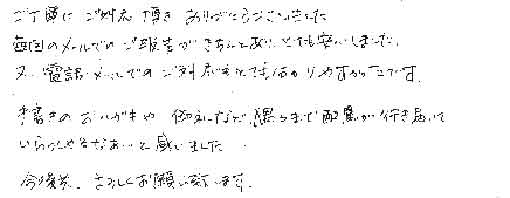 ご丁寧に ご対応 頂き ありがとうございました
毎回のメールでの ご報告が きちんとあり、とても安心しました。
又、電話・メールでの ご対応もとても分かりやすかったです。
手書きの おハガキや 隅々まで 配慮が 行き届いて
いらっしゃるなあ…と感じました
今後共、よろしくお願い致します。